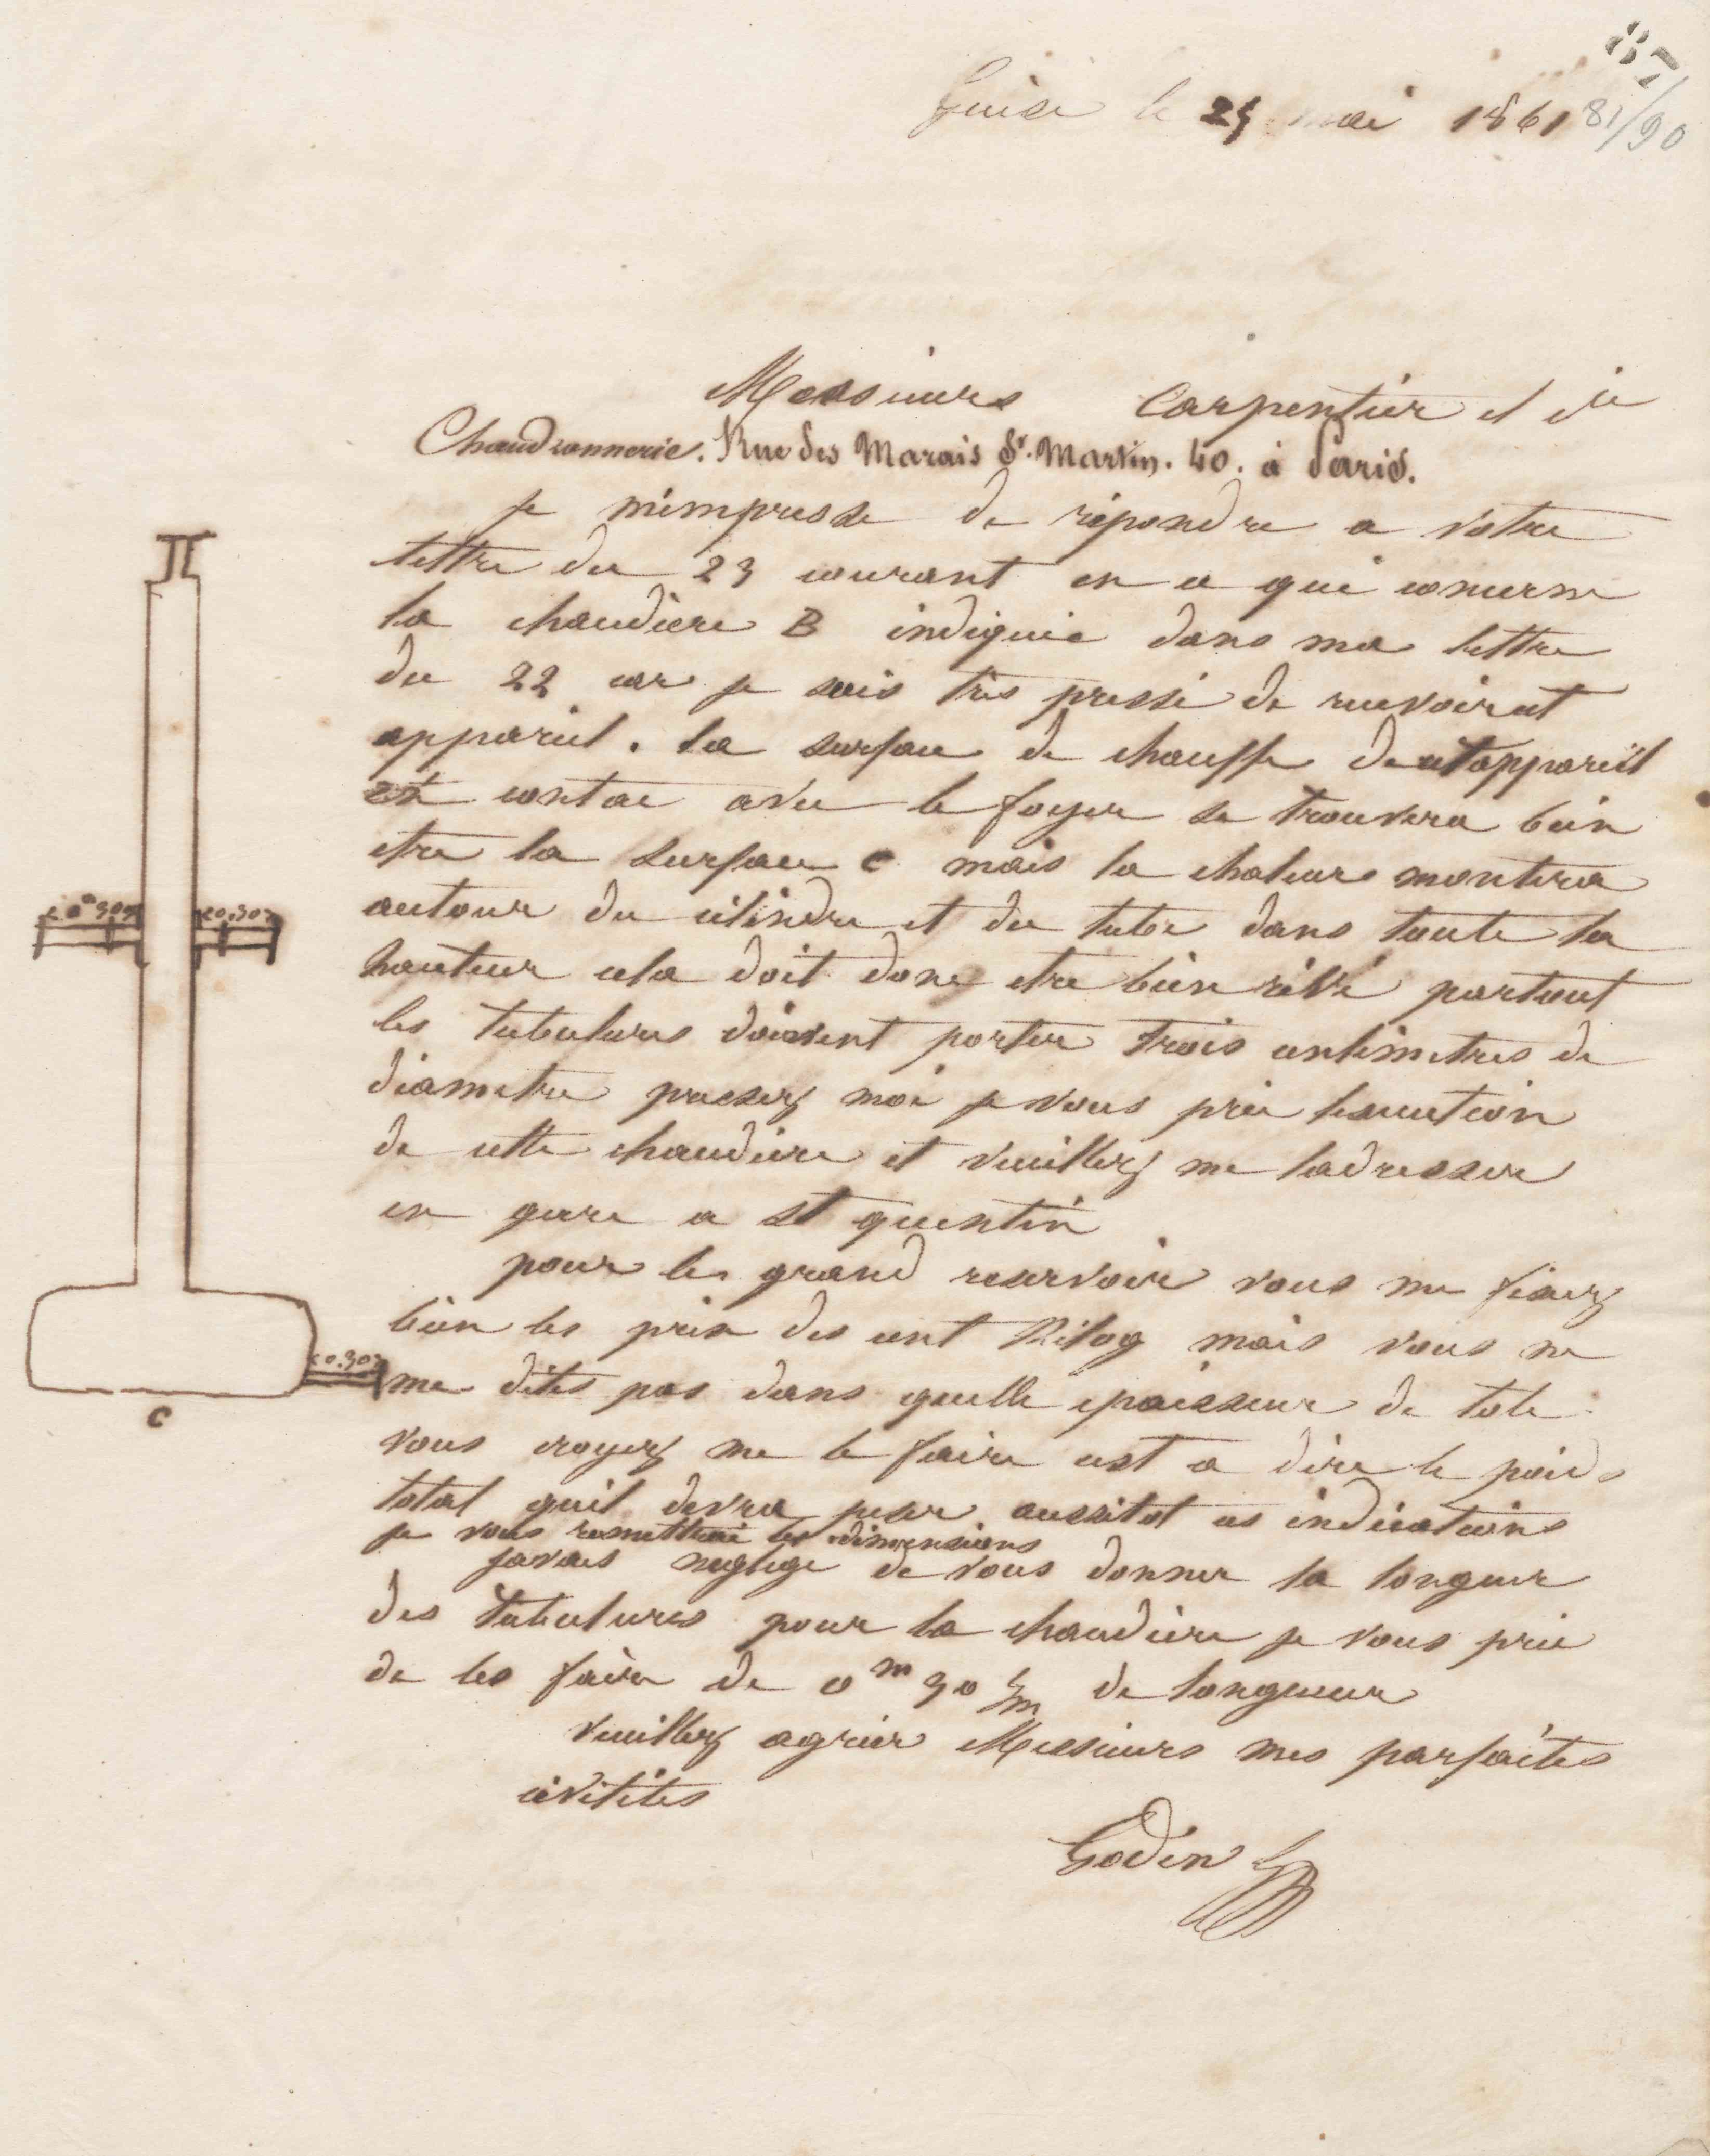 87
Guise le 25 mai 1861 81/90
Messieurs Carpentier et Cie
Chaudronnerie. Rue des Marais St. Martin. 40. à Paris.
je m'empresse de répondre a votre
lettre du 23 courant en ce qui concerne
la chaudiere B indiquée dans ma lettre
du 22 car je suis très pressé de recevoir cet
appareil. la surface de chauffe de cet appareil
en contac avec le foyer se trouvera bien
etre la surface C mais la chaleurs montera
autour du cilindre et du tube dans toute la
hauteur cela doit donc etre bien rivé partout
les tubulures doivent porter trois centimetres de
diametre pressez moi je vous prie lexecution
de cette chaudiere et veuillez me ladresser
en gare a St quentin
pour le grand reservoir vous me fixez
bien les prix des cent Kilog mais vous ne
me dites pas dans quelle epaisseur de tole
vous croyez me le faire cest a dire le poids
total quil devra peser aussitot ces indications
je vous remettrai les dimensions
javais neglige de vous donner la longueur
des tubulures pour la chaudiere je vous prie
de les faire de 0m 30 c/m de longueur
veuillez agréer Messieurs mes parfaites
civilités
Godin
0m 30
0.30
0.30
C